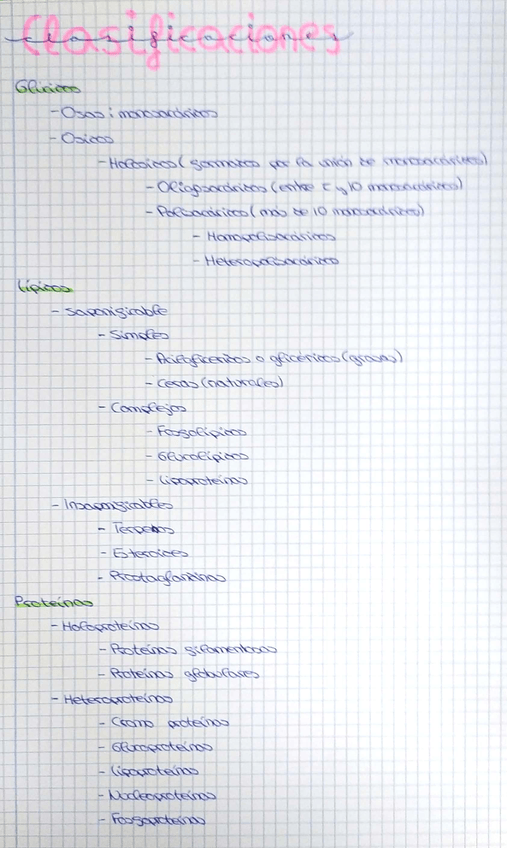 Clasificaciones
Glúcidos
- Osas: monosacáridos
- Ósidos
- Holósidos (formados por la unión de monosacáridos)
- Oligosacáridos (entre 2 y 10 monosacáridos)
- Polisacáridos (más de 10 monosacáridos)
- Homopolisacáridos
- Heteropolisacáridos
Lípidos
- Saponificable
- Simples
- Acilglicéridos o glicéridos (grasas)
- Ceras (naturales)
- Complejos
- Fosfolípidos
- Glucolípidos
- Lipoproteínas
- Insaponificables
- Terpenos
- Esteroides
- Prostaglandinas
Proteínas
- Holoproteínas
- Proteínas filamentosas
- Proteínas globulares
- Heteroproteínas
- Cromo proteínas
- Glucoproteínas
- Lipoproteínas
- Nucleoproteínas
- Fosfoproteínas